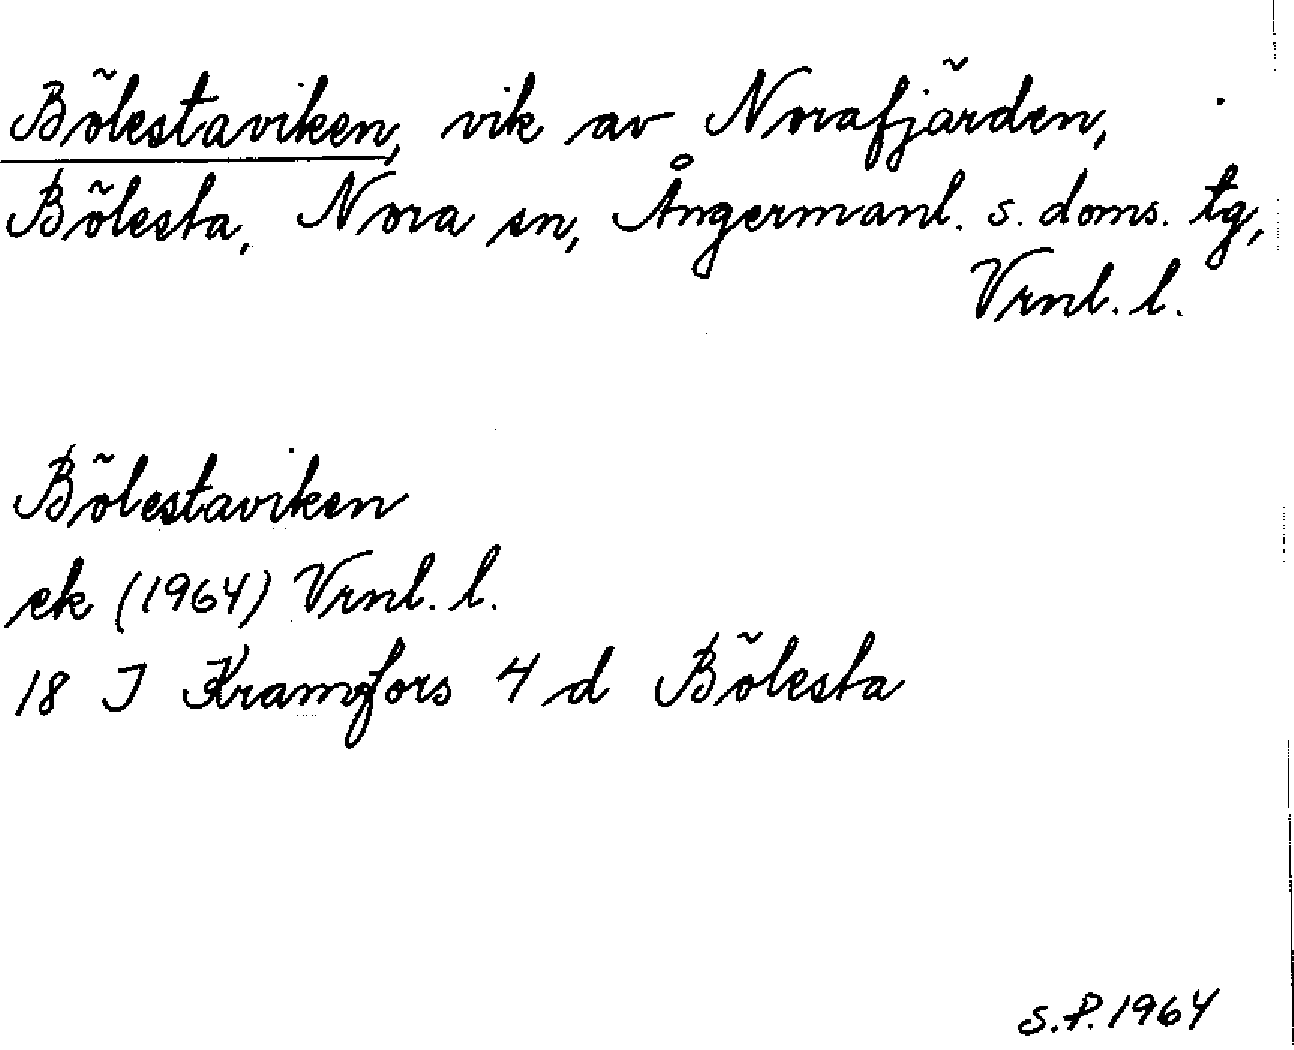 Bölestaviken, vik av Norafjärden,
Bölesta, Nora sn, Ångermanl. s. doms. tg,
Vrnl. l.
Bölestaviken
ek (1964) Vrnl. l.
18 I Kramfors 4 d Bölesta
S.P. 1964